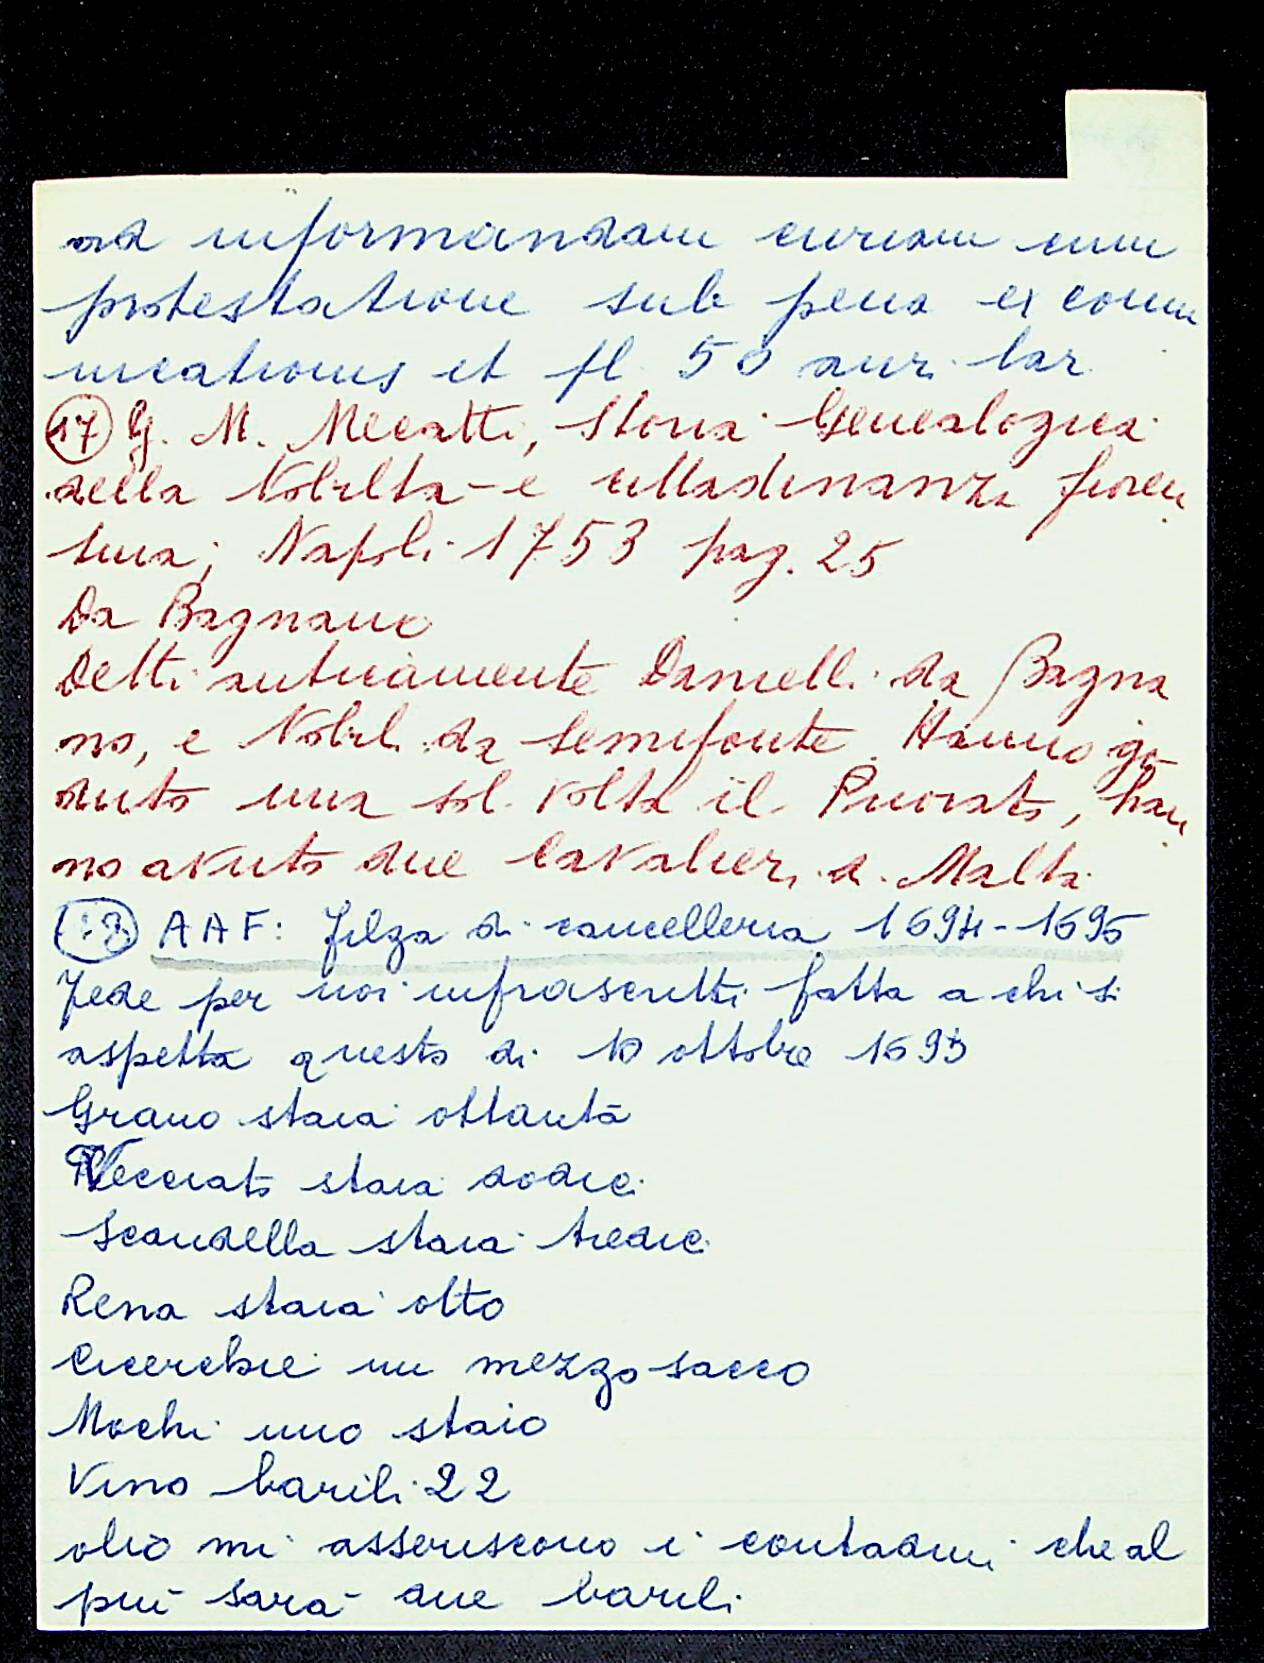 ad informandam curiam cum
protestatione sub pena excomu
nicationis et fl. 50 aur. lar.
17 G. M. Mecatti, Storia Genealogica
della Nobiltà e cittadinanza fioren
tina; Napoli 1753 pag. 25
Da Bagnano
Detti anticamente Danielli da Bagna
no, e Nobili da Semifonte. Hanno go
duto una sol volta il Priorato, han
no avuto due Cavalieri di Malta.
18 AAF: Filza di cancelleria 1694-1695
Fede per noi infrascritti fatta a chi si
aspetta questo dì 10 ottobre 1695
Grano staia ottanta
Vecciato staia dodici
Scandella staia tredici
Rena staia otto
Cicerchie un mezzo sacco
Mochi uno staio
Vino barili 22
olio mi asseriscono i contadini che al
più sarà due barili